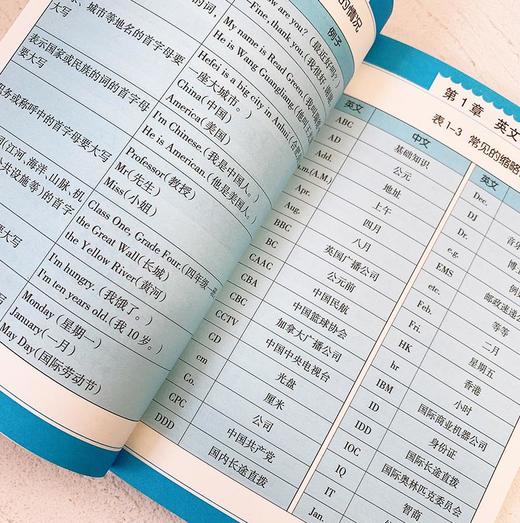 的情况
例子
are you?(最近好吗?)
—Fine, thank you.(我很好,谢谢
My name is Read Green.(我
He is Wang Guangliang.(他
Hefei is a big city in Anhui.(合
座大城市。)
、城市等地名的首字母要
大写
China(中国)
America(美国)
表示国家或民族的词的首字母
要大写
I'm Chinese.(我是中国人。)
He is American.(他是美国人。)
或称呼中的首字母要大写
Professor(教授)
Mr(先生)
Miss(小姐)
(江、海洋、山脉、机
共设施等)的首字
Class One, Grade Four.(四年级一班
the Great Wall(长城)
the Yellow River(黄河)
要大写
I'm hungry.(我饿了。)
I'm ten years old.(我10岁。)
写
Monday(星期一)
January(一月)
May Day(国际劳动节)
第1章 英文
表1-3 常见的缩略
英文 中文 英文
ABC 基础知识 Dec.
AD 公元 DJ
Add. 地址 Dr.
a.m.(A.M.) 上午 e.g.
Apr. 四月 EMS
Aug. 八月 etc.
BBC 英国广播公司 Feb.
BC 公元前 Fri.
CAAC 中国民航 HK
CBA 中国篮球协会 hr
CBC 加拿大广播公司 IBM
CCTV 中国中央电视台 ID
CD 光盘 IDD
cm 厘米 IOC
Co. 公司 IQ
CPC 中国共产党 IT
DDD 国内长途直拨 Jan.
音
博
例
邮政速递
等等
二月
星期五
香港
小时
国际商业机器公司
身份证
国际长途直拨
国际奥林匹克委员
智商